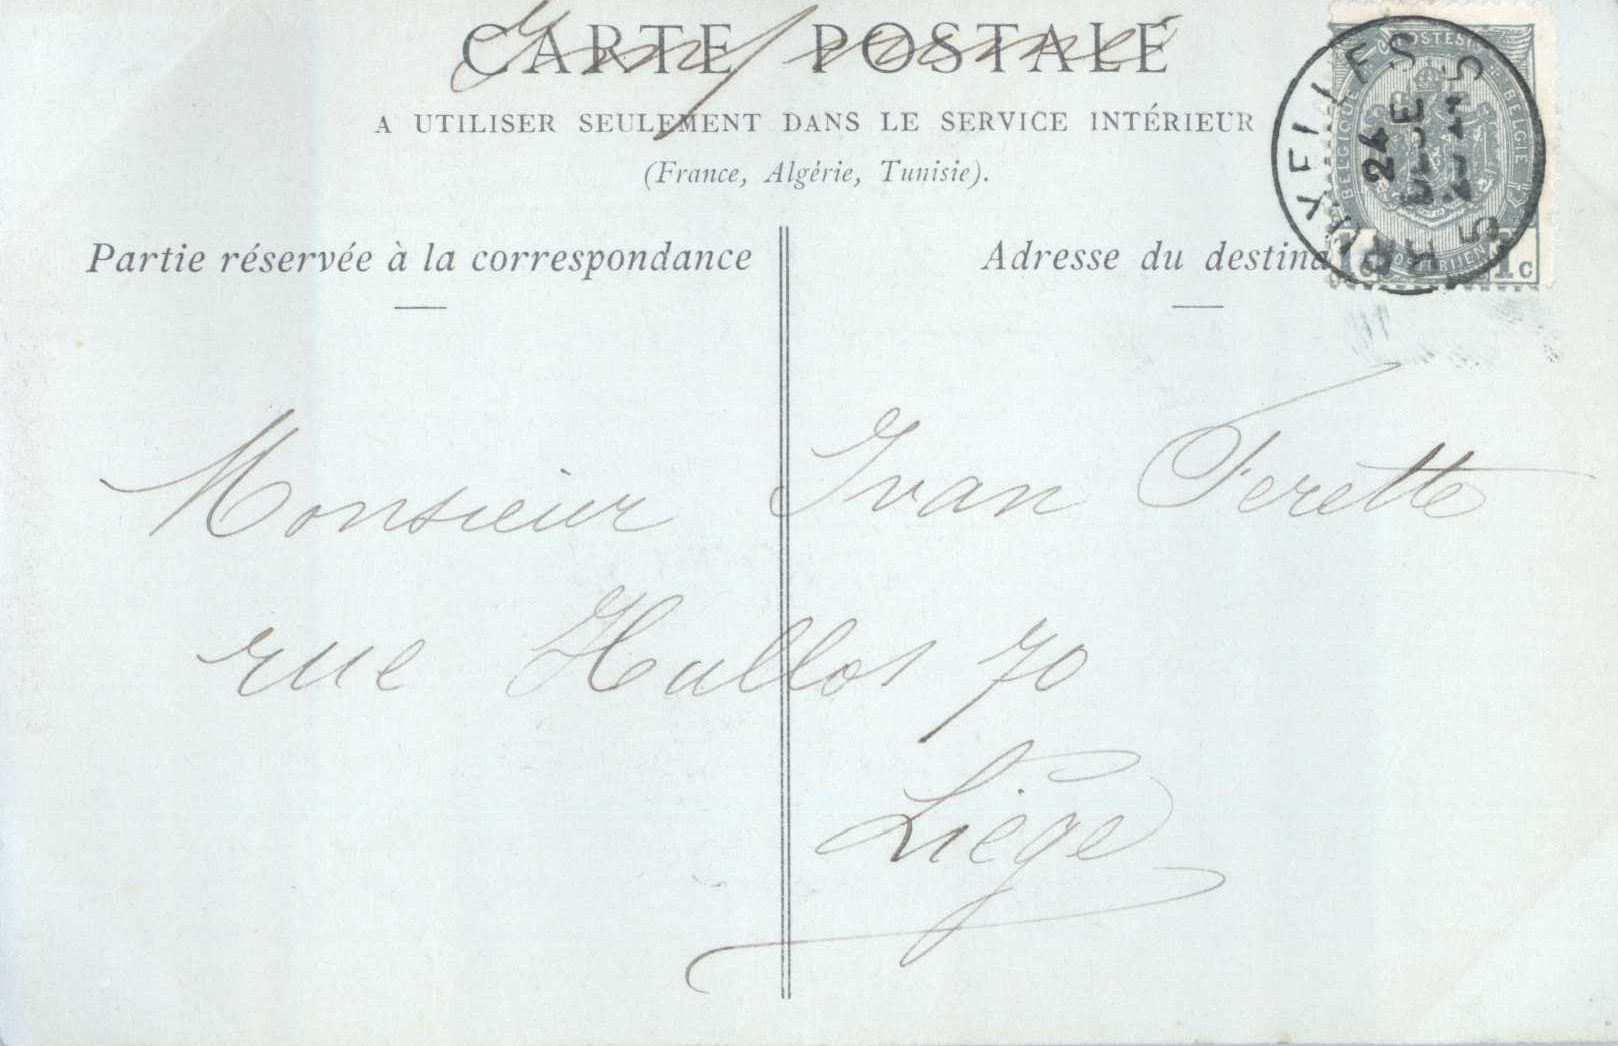 CARTE POSTALE
Imprimé
A UTILISER SEULEMENT DANS LE SERVICE INTÉRIEUR
(France, Algérie, Tunisie).
Partie réservée à la correspondance
Adresse du destina
BRUXELLES 5
24
DÉCE
BELGIQUE POSTES BELGIE
1c 1c
Monsieur Ivan Ferette
rue Hullos 70
Liége